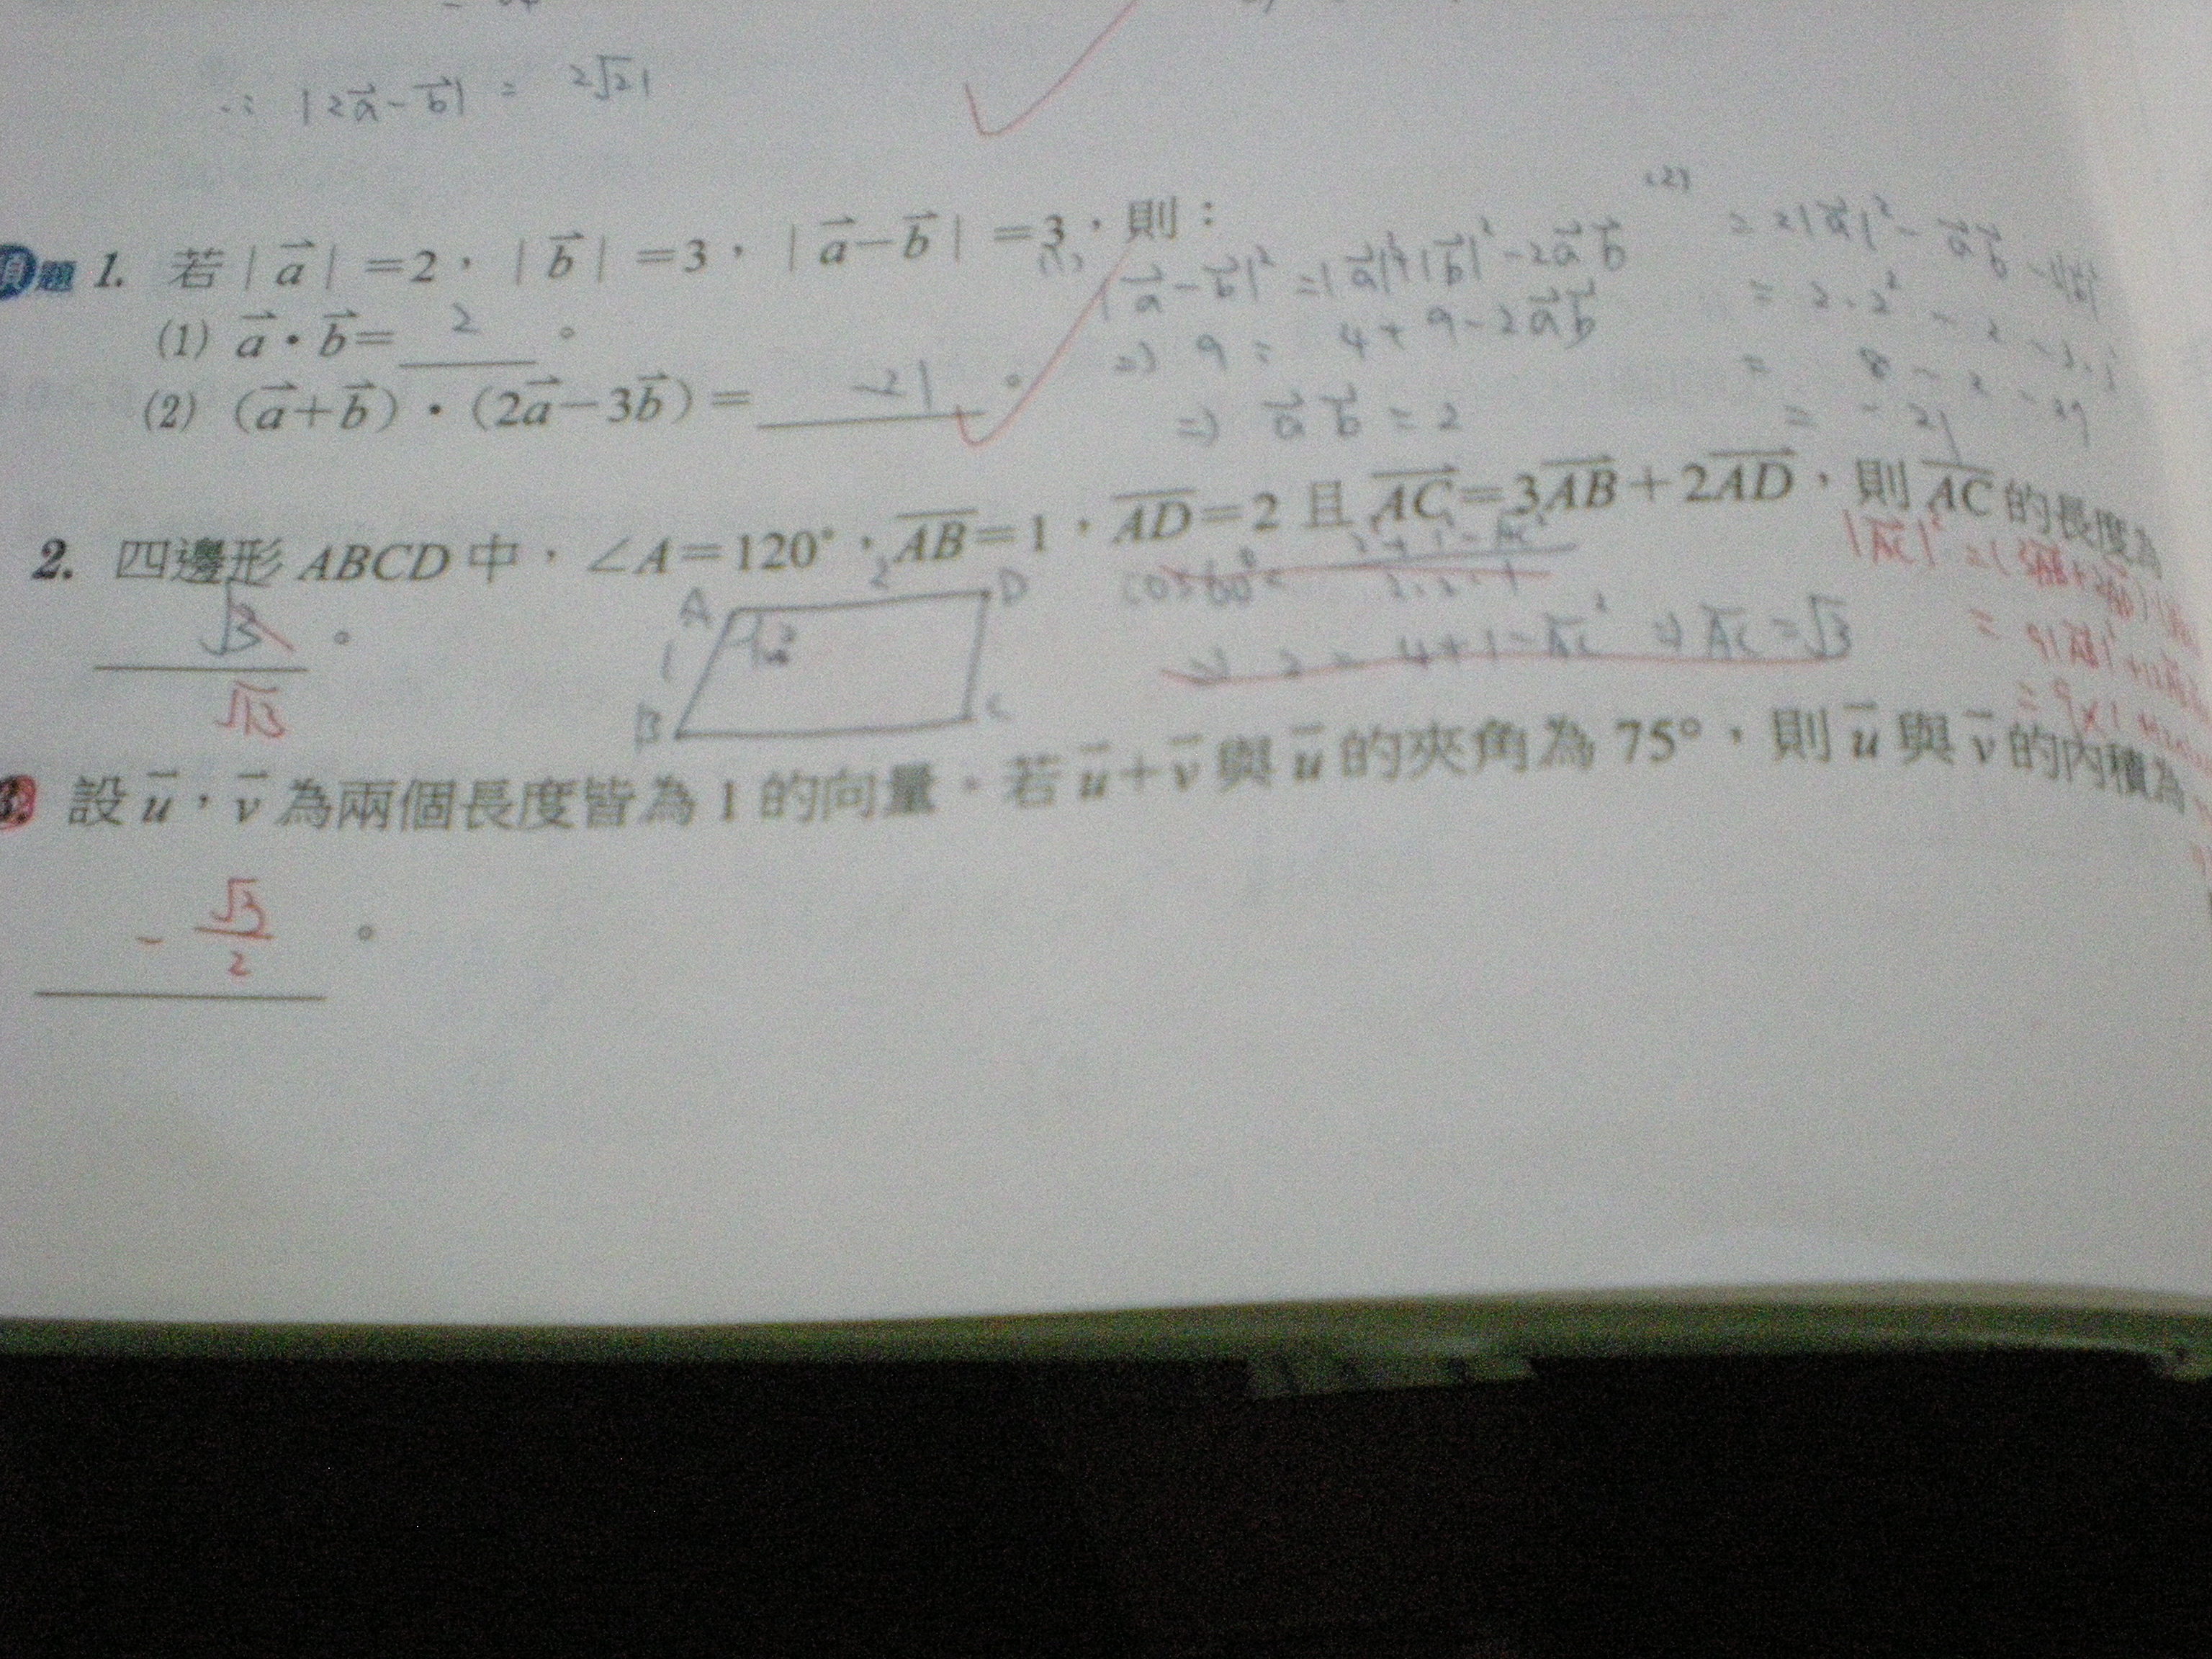 ∴ |2a⃗-b⃗| = 2√21
題 1. 若|a⃗|=2，|b⃗|=3，|a⃗-b⃗|=3，則：
(1) a⃗·b⃗= 2 。
(2) (a⃗+b⃗)·(2a⃗-3b⃗)= -21 。
(1) |a⃗-b⃗|²=|a⃗|²+|b⃗|²-2a⃗b⃗
⇒ 9 = 4+9-2a⃗b⃗
⇒ a⃗b⃗ = 2
(2)
= 2|a⃗|²-a⃗b⃗
= 2·2²-2-3·
= 8-2-27
= -21
2. 四邊形 ABCD 中，∠A=120°，AB=1，AD=2 且 AC⃗=3AB⃗+2AD⃗，則 AC 的長度為
√3 。
√13
A 2 D
1
B C
cos60°=
⇒ 2 = 4+1-AC² ⇒ AC=√3
|AC⃗|²=(3AB⃗+2AD⃗)
= 9|AB⃗|²+12
= 9×1
3. 設 u⃗，v⃗ 為兩個長度皆為 1 的向量。若 u⃗+v⃗ 與 u⃗ 的夾角為 75°，則 u⃗ 與 v⃗ 的內積為
-√3/2 。